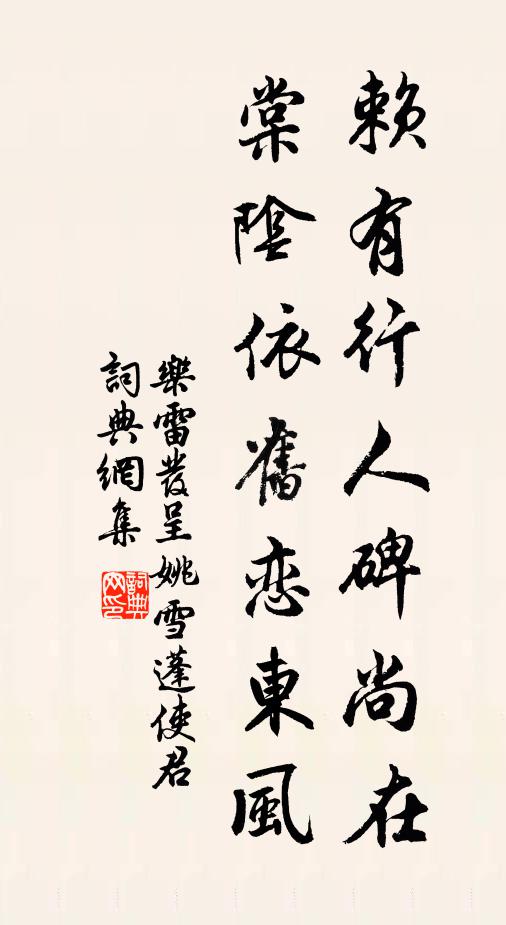 賴有行人碑尚在
棠陰依舊恋東風
樂雷發呈姚雪蓬使君
詞典網集
詞典网印